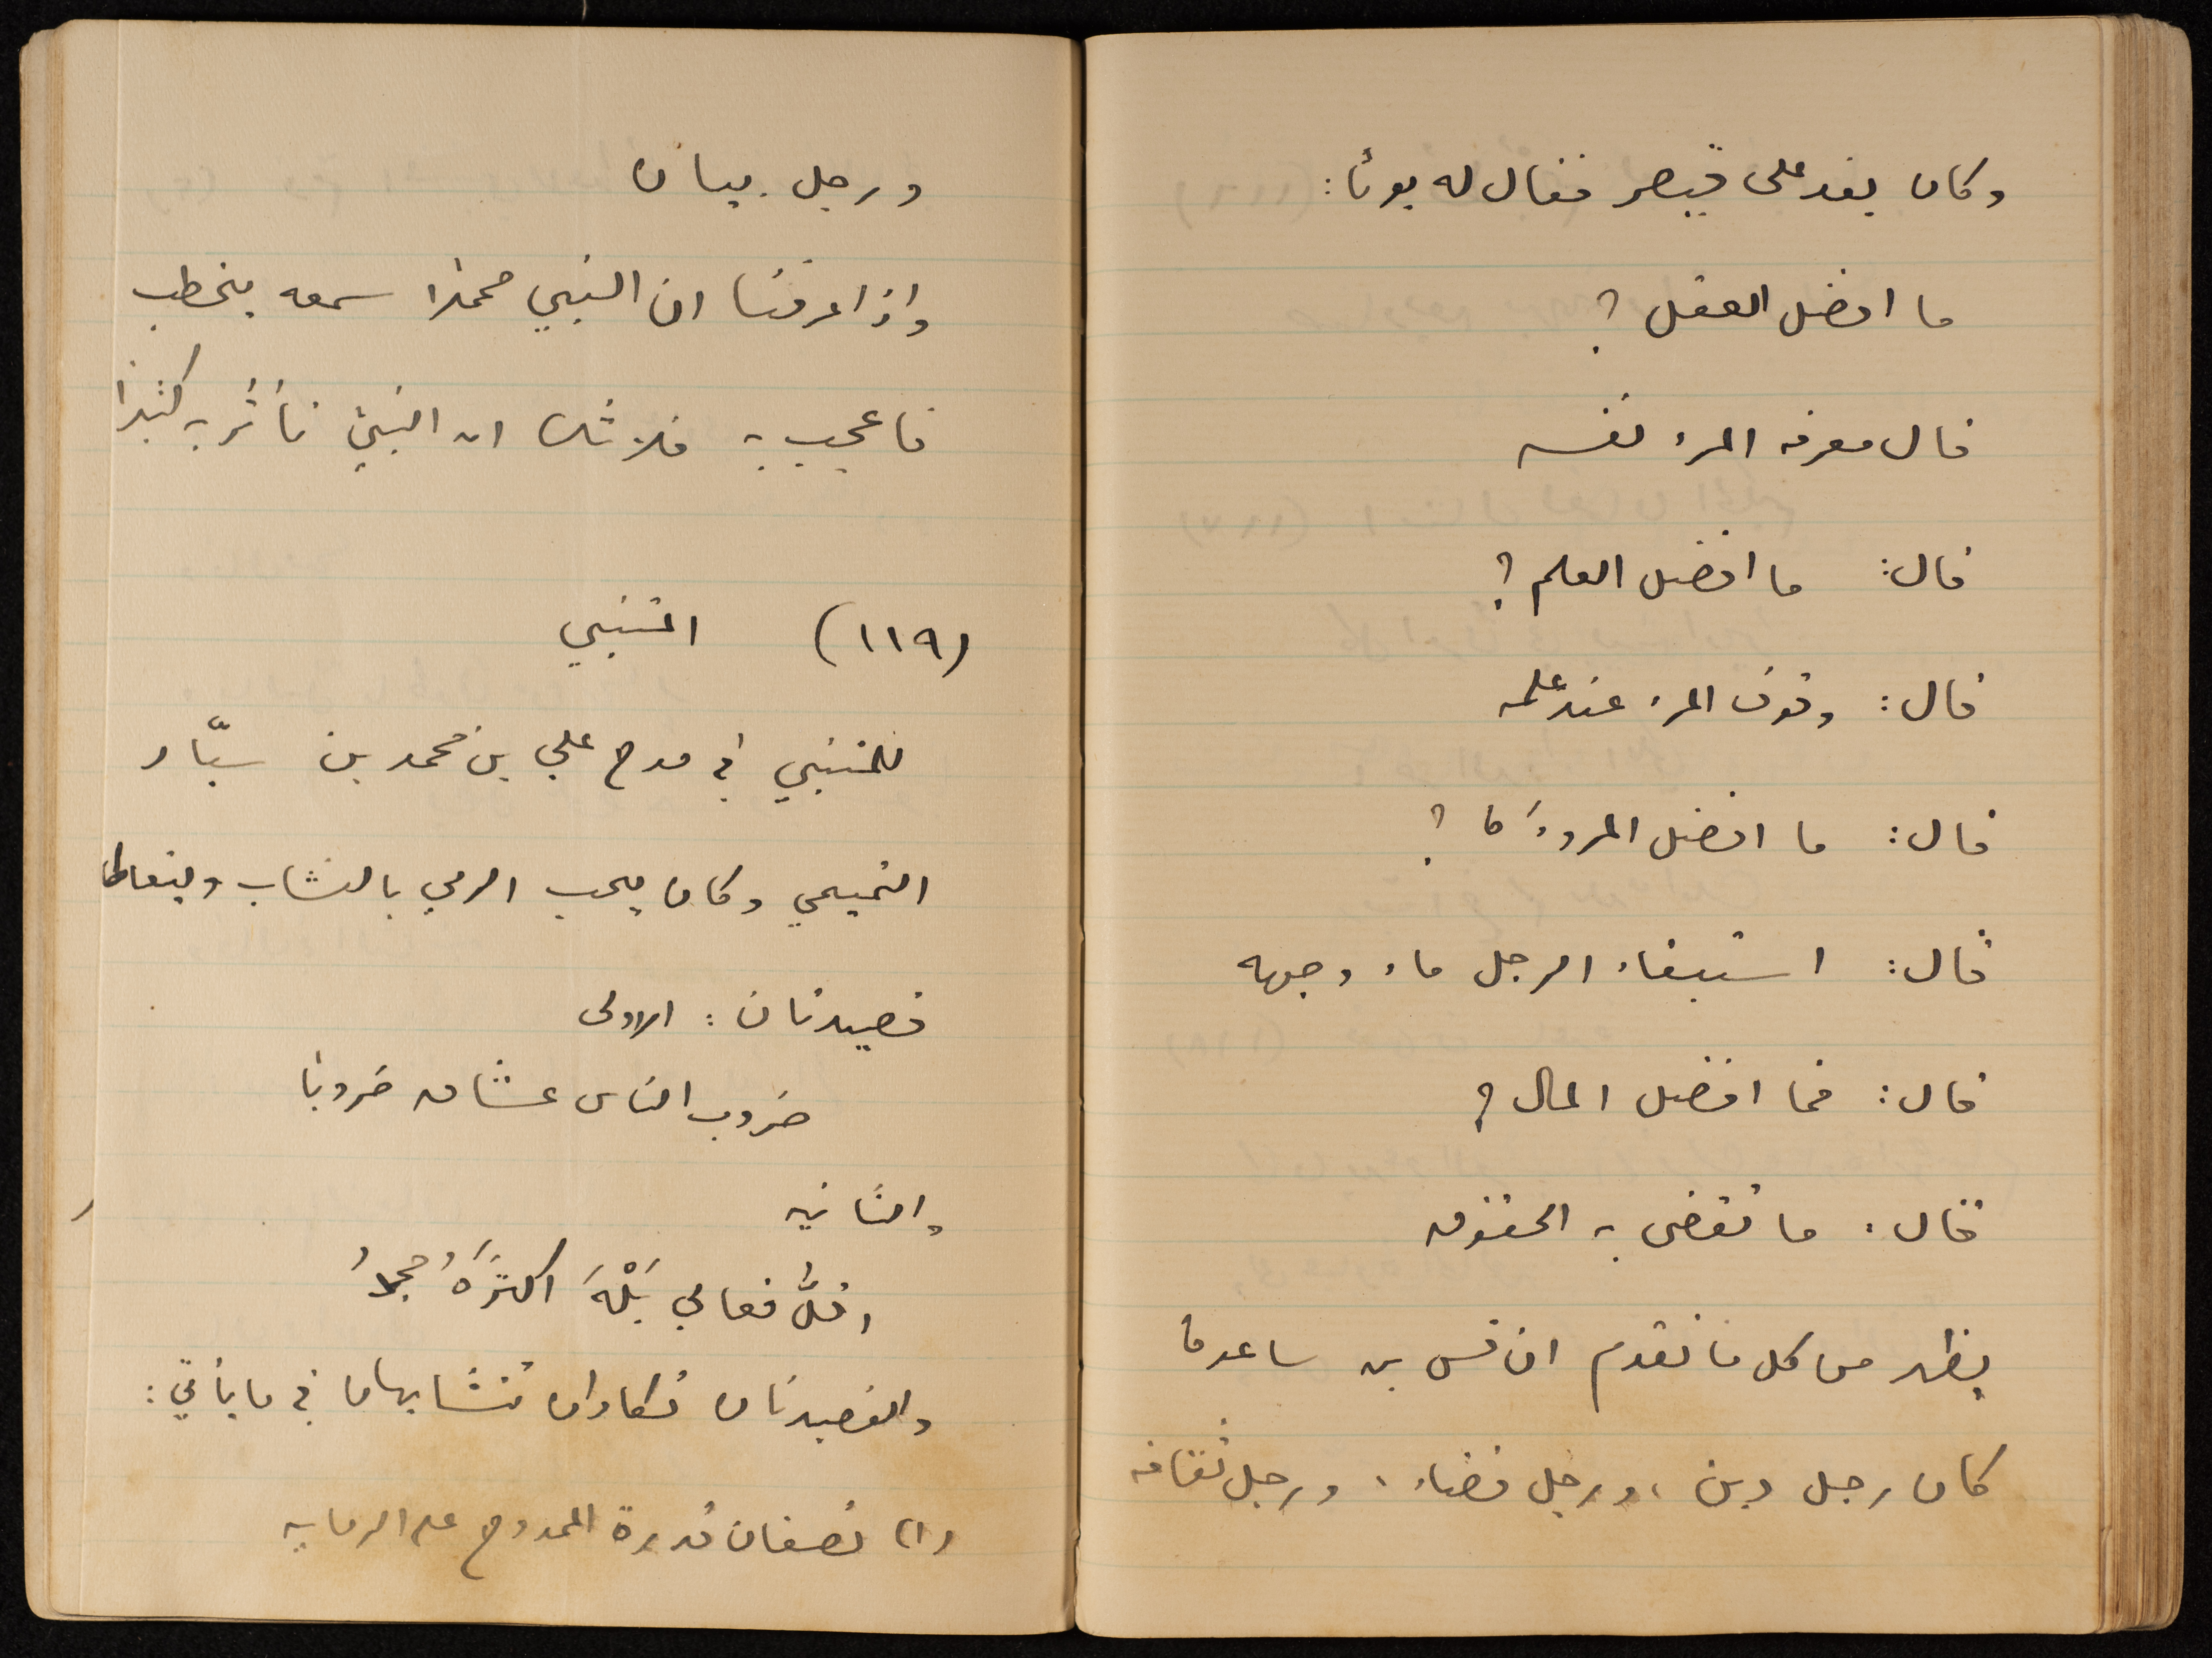 وكان يفد على قيصر فقال له يومًا:
ما افضل العقل؟
قال معرفه المرء نفسه
قال: ما افضل العلم؟
قال: وقوف المرء عند علمه
قال: ما افضل المروءَه؟
قال: استبقاء الرجل ماء وجهه
قال: فما افضل المال؟
قال: ما تقضى به الحقوق
يظهر من كل ما تقدم ان قس بن ساعده
كان رجل دين، ورجل قضاء، ورجل ثقافه
ورجل بيان
واذا عرفنا ان النبي محمدًا سمعه يخطب
فاعجب به فلا شك ان النبيّ تأثر به كثيرًا
(١١٩) المتنبي
للمتنبي في مدح علي بن محمد بن سيّار
التميمي وكان يحب الرمي بالنشاب ويتعاطاه
قصيدتان: الاولى
ضروب الناس عشاق ضروبا
والثانيه
اقلُّ فعالي بَلْهَ اكثرَهُ مجدُ
والقصيدتان تكادان تتشابهان في ما يأتي:
(١) تصفان قدرة الممدوح على الرمايه